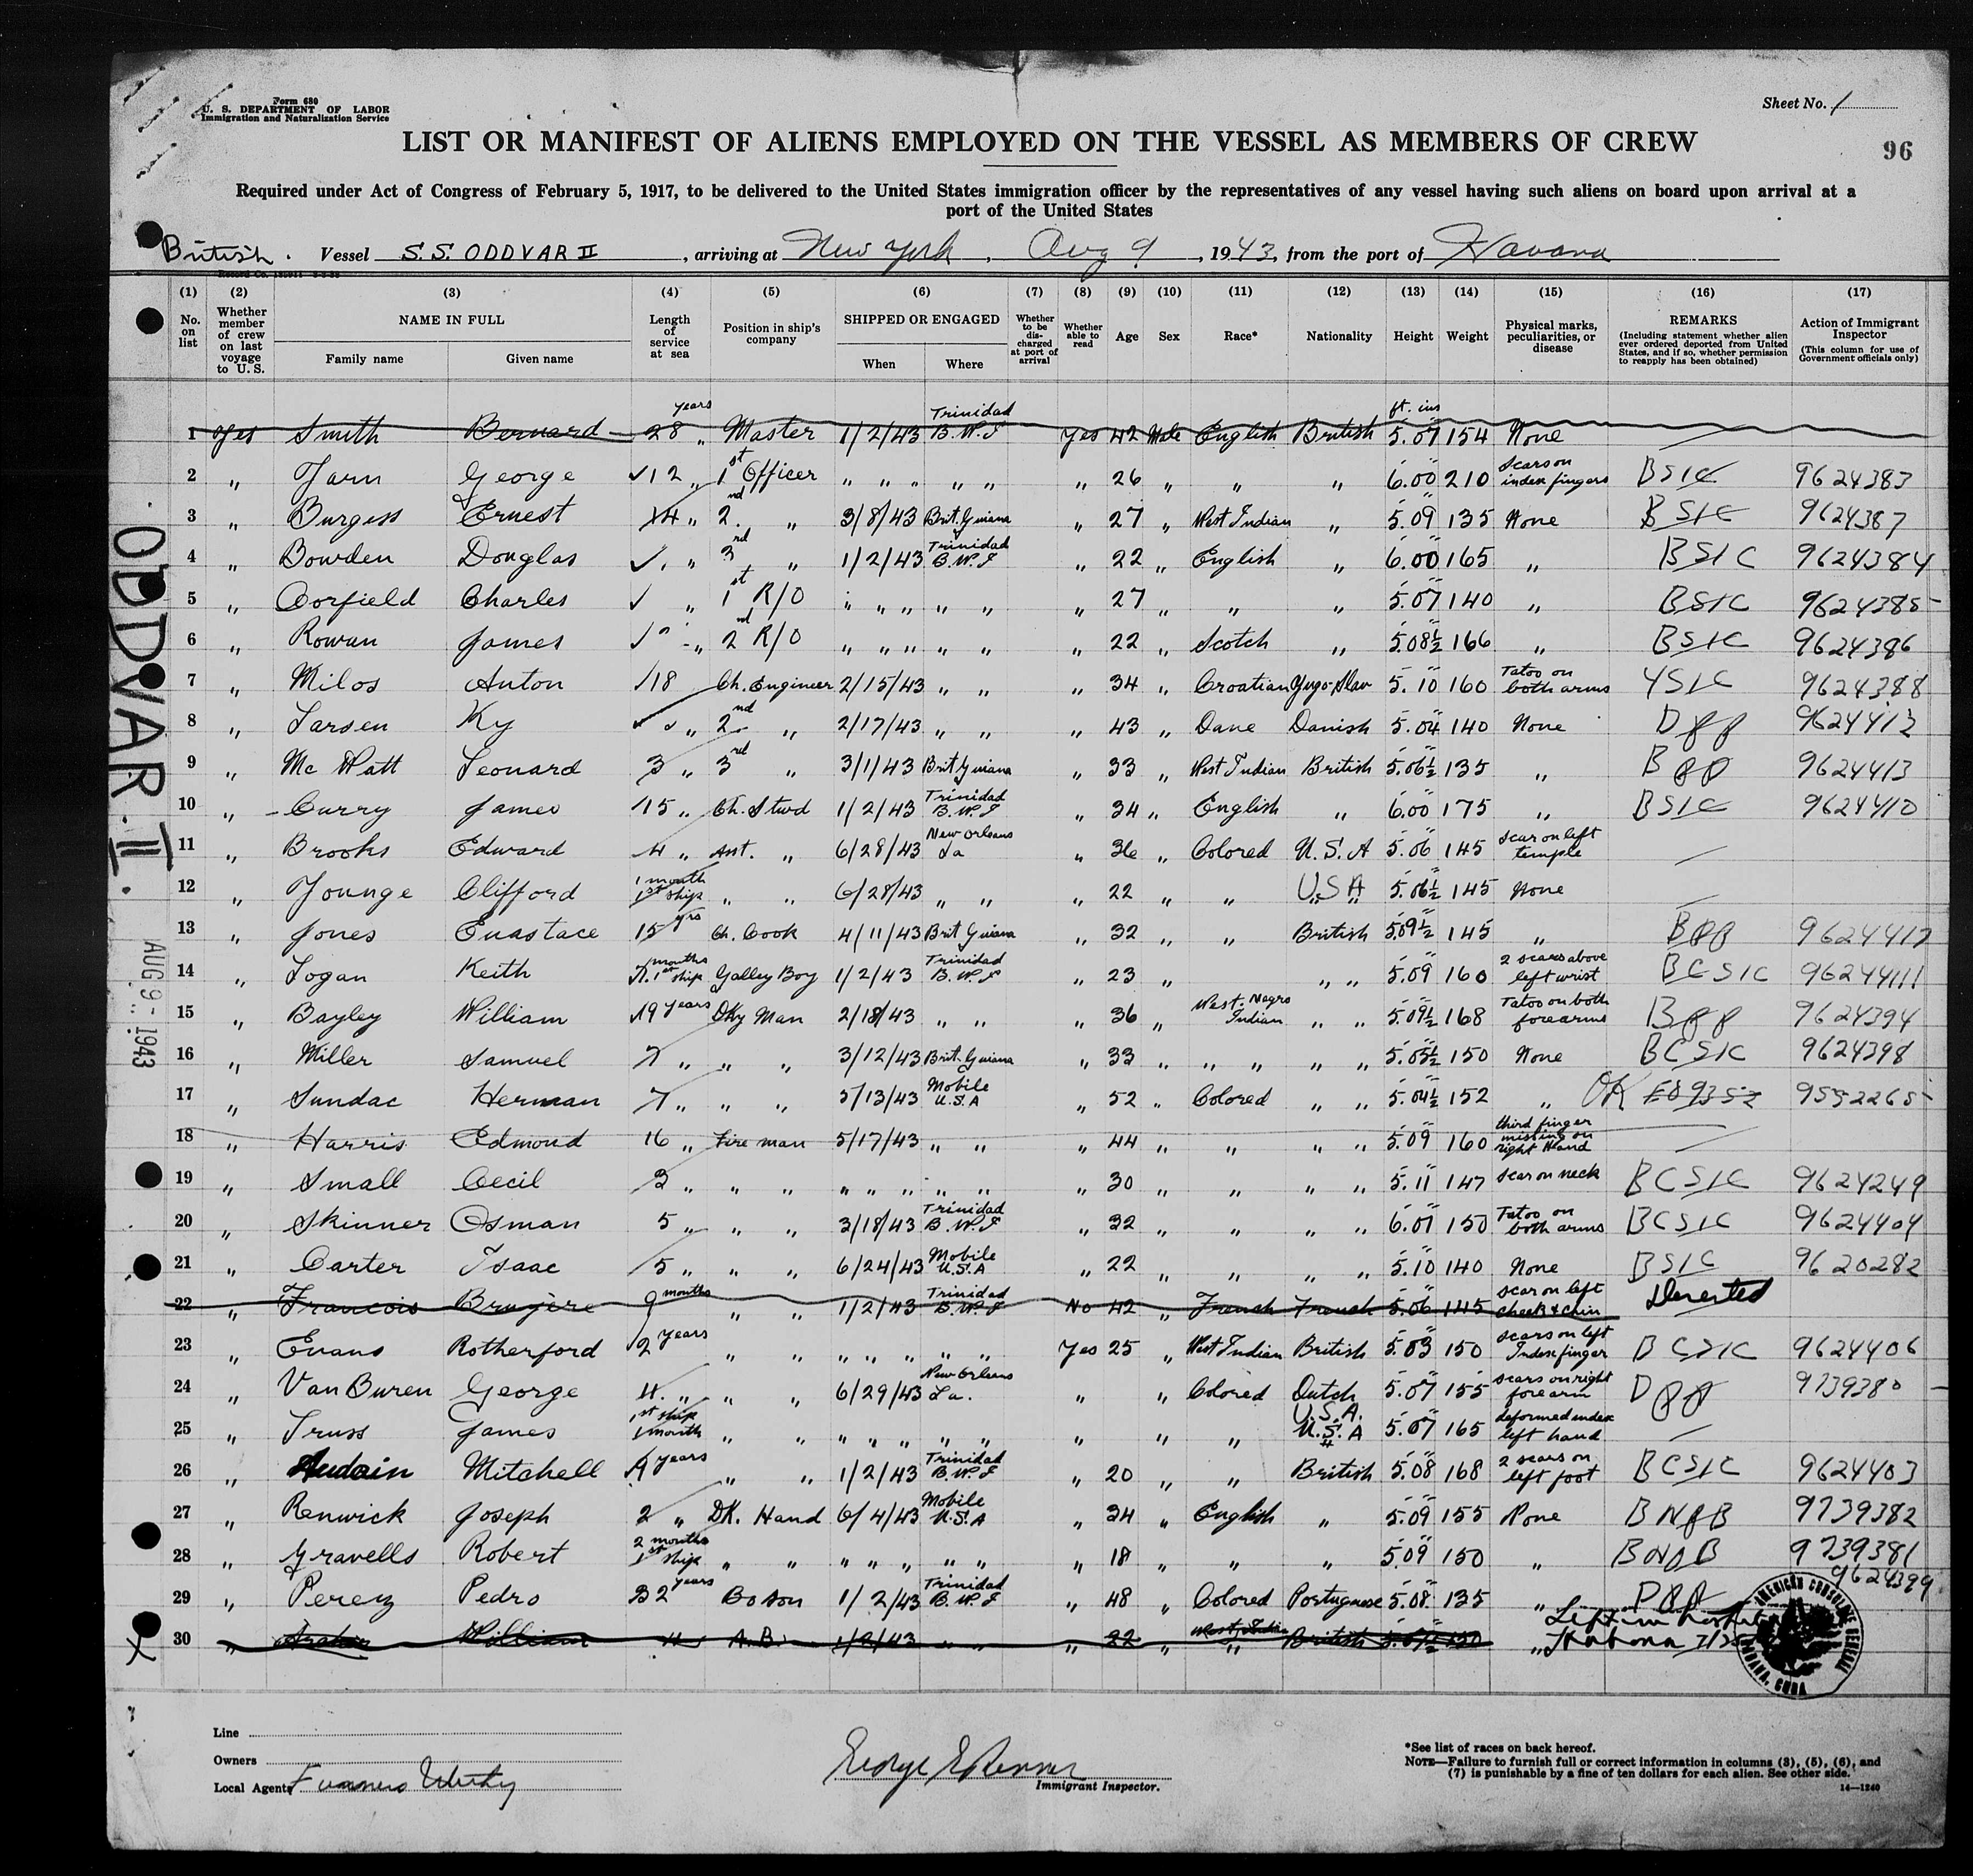 Form 680
U. S. DEPARTMENT OF LABOR
Immigration and Naturalization Service
Sheet No. 1
96
LIST OR MANIFEST OF ALIENS EMPLOYED ON THE VESSEL AS MEMBERS OF CREW
Required under Act of Congress of February 5, 1917, to be delivered to the United States immigration officer by the representatives of any vessel having such aliens on board upon arrival at a
port of the United States
British. Vessel S.S. ODDVAR II, arriving at New York, Aug 9, 1943, from the port of Havana
(1) (2) (3) (4) (5) (6) (7) (8) (9) (10) (11) (12) (13) (14) (15) (16) (17)
No. on list
Whether member of crew on last voyage to U. S.
NAME IN FULL
Family name Given name
Length of service at sea
Position in ship's company
SHIPPED OR ENGAGED
When Where
Whether to be discharged at port of arrival
Whether able to read
Age
Sex
Race*
Nationality
Height
Weight
Physical marks, peculiarities, or disease
REMARKS
(Including statement whether alien ever ordered deported from United States, and if so, whether permission to reapply has been obtained)
Action of Immigrant Inspector
(This column for use of Government officials only)
1 Yes Smith Bernard 28 years Master 1/2/43 Trinidad B.W.I Yes 42 Male English British ft. ins 5.07 154 None
2 " George 12 " 1st Officer " " " " " " 26 " " " 6.00 210 scars on index fingers BSIC 9624383
3 " Burgess Ernest 2nd " 3/8/43 Brit. Guiana " 27 " West Indian " 5.09 135 None BSIC 9624387
4 " Bowden Douglas " 3rd " 1/2/43 Trinidad B.W.I " 22 " English " 6.00 165 " BSIC 9624384
5 " Corfield Charles " 1st R/O " " " " " " 27 " " " 5.07 140 " BSIC 9624385
6 " Rowan James 2nd R/O " " " " " " 22 " Scotch " 5.08½ 166 " BSIC 9624386
7 " Milos Anton 18 Ch. Engineer 2/15/43 " " " 34 " Croatian Yugo-Slav 5.10 160 Tatoo on both arms YSIC 9624388
8 " Larsen Ky " 2nd " 2/17/43 " " " 43 " Dane Danish 5.04 140 None DPP 9624412
9 " Mc Watt Leonard 3 " 3rd " 3/1/43 Brit Guiana " 33 " West Indian British 5.06½ 135 " BPP 9624413
10 " Curry James 15 " Ch. Stwd 1/2/43 Trinidad B.W.I " 34 " English " 6.00 175 " BSIC 9624410
11 " Brooks Edward 4 " Ast. " 6/28/43 New Orleans La " 36 " Colored U.S.A 5.06 145 scar on left temple
12 " Younge Clifford 1 month 1st ship " " 6/28/43 " " " 22 " " U.S.A 5.06½ 145 None
13 " Jones Euastace 15 yrs Ch. Cook 4/11/43 Brit Guiana " 32 " " British 5.09½ 145 " BPP
14 " Logan Keith 7 months 1st ship Galley Boy 1/2/43 Trinidad B.W.I " 23 " " " 5.09 160 2 scars above left wrist BCSIC
15 " Bayley William 19 years Dky Man 2/18/43 " " " 36 " West Indian Negro " " 5.09½ 168 Tatoo on both forearms BPP 9624394
16 " Miller Samuel 7 " " " 3/12/43 Brit. Guiana " 33 " " " " " 5.05½ 150 None BCSIC 9624398
17 " Sundac Herman 7 " " " 5/13/43 Mobile U.S.A " 52 " Colored " " 5.04½ 152 " OK 9552265
18 " Harris Edmond 16 " Fire man 5/17/43 " " " 44 " " " " 5.09 160 third finger missing on right Hand
19 " Small Cecil 3 " " " " " " " " " 30 " " " " 5.11 147 scar on neck BCSIC 9624249
20 " Skinner Osman 5 " " " 3/18/43 Trinidad B.W.I " 32 " " " " 6.01 150 Tatoo on both arms BCSIC 9624404
21 " Carter Isaac 5 " " " 6/24/43 Mobile U.S.A " 22 " " " " 5.10 140 None BSIC 9620282
22 " Francois Brujère 9 months " " 1/2/43 Trinidad B.W.I No 42 " French French 5.06 145 scar on left cheek & chin Deserted
23 " Evans Rotherford 2 years " " " " " " " Yes 25 " West Indian British 5.03 150 scars on left Index finger BCSIC 9624406
24 " Van Buren George 4 " " " 6/29/43 New Orleans La. " " Colored Dutch 5.07 155 scars on right forearm DPP 9739380
25 " Truss James 1st ship 1 month " " " " " " " " " " U.S.A. U.S.A 5.07 165 deformed index left hand
26 " Audain Mitchell 4 years " " 1/2/43 Trinidad B.W.I " 20 " " British 5.08 168 2 scars on left foot BCSIC 9624403
27 " Renwick Joseph 2 " DK. Hand 6/4/43 Mobile U.S.A " 34 " English " 5.09 155 None BNPB 9739382
28 " Gravells Robert 2 months 1st ship " " " " " " " " 18 " " " 5.09 150 " 9739381
29 " Perez Pedro 32 years Boson 1/2/43 Trinidad B.W.I " 48 " Colored Portuguese 5.08 135 " PPP 9624399
30 " William A.B. 1/2/43 " " " 22 " West Indian British " Left in hospital Habana
AMERICAN CONSULATE GENERAL
HABANA, CUBA
ODDVAR II.
AUG 9 - 1943
Line
Owners
Local Agents
Immigrant Inspector.
*See list of races on back hereof.
NOTE—Failure to furnish full or correct information in columns (3), (5), (6), and
(7) is punishable by a fine of ten dollars for each alien. See other side.
14—1240